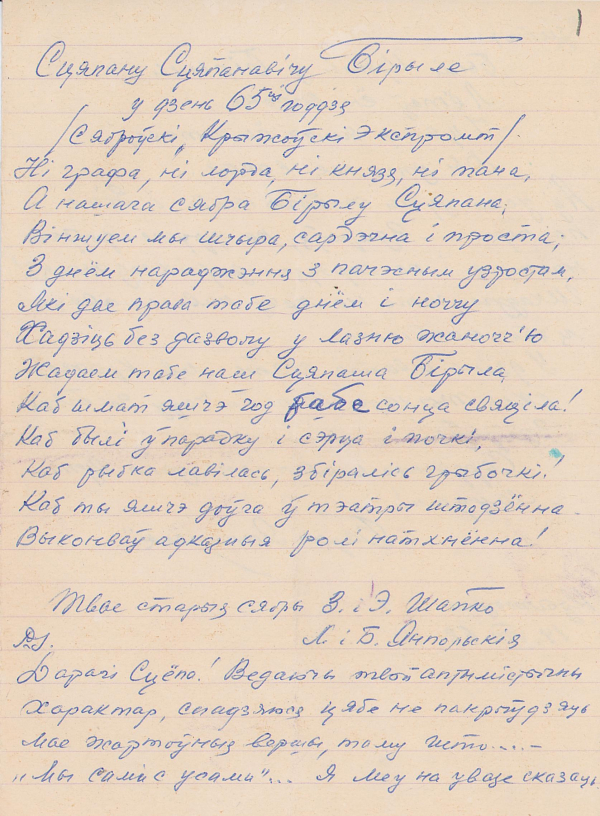 1
Сцяпану Сцяпанавічу Бірыле
у дзень 65 годдзя
/Сяброўскі, Крыжоўскі экспромт/.
Ні графа, ні лорда, ні князя, ні пана,
А нашага сябра Бірылу Сцяпана;
Віншуем мы шчыра, сардэчна і проста;
З днём нараджэння з пачэсным узростам,
Які дае права табе днём і ноччу
Хадзіць без дазволу у лазню жаночч'ю
Жадаем табе наш Сцяпаша Бірыла,
Каб шмат яшчэ год табе сонца свяціла!
Каб былі ў парадку і сэрца і почкі,
Каб рыбка лавілась, збіралісь грыбочкі!
Каб ты яшчэ доўга ў тэатры штодзённа
Выконваў адказныя ролі натхнённа!
Твае старыя сябры З. і Э. Шапко
Л. і Б. Янпольскія
P.S.
Дарагі Сцёпа! Ведаючы твой аптымістычны
характар, спадзяюся цябе не пакрыўдзяць
мае жартоўныя вершы, таму што.... –
„Мы самі с усамі"... Я меў на ўвазе сказаць